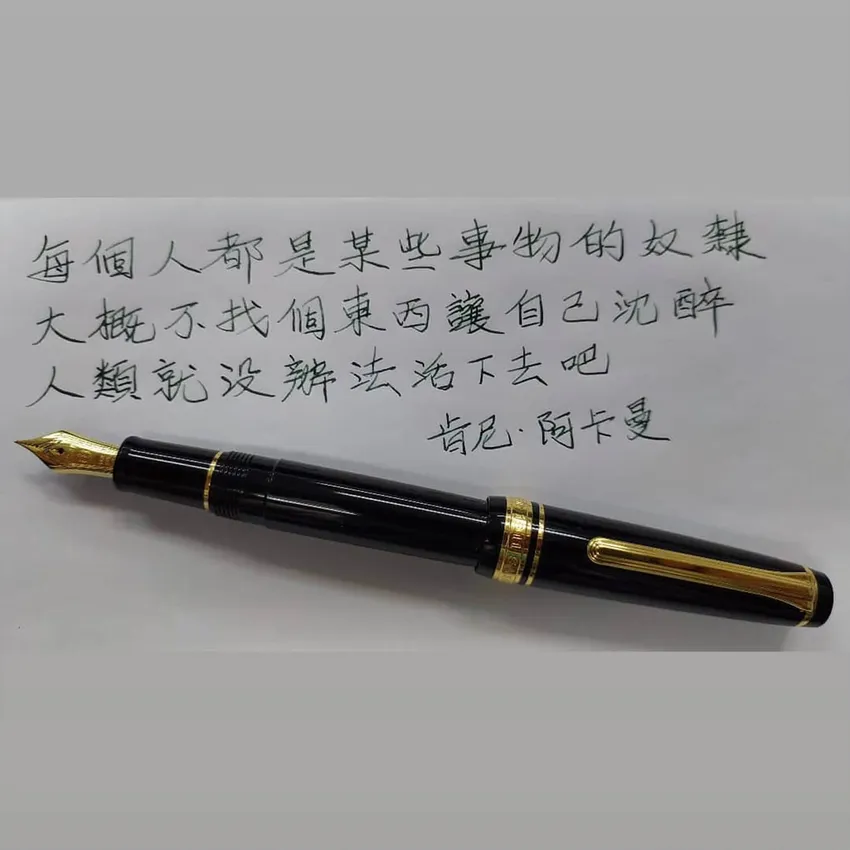 每個人都是某些事物的奴隸
大概不找個東西讓自己沈醉
人類就沒辦法活下去吧
肯尼·阿卡曼